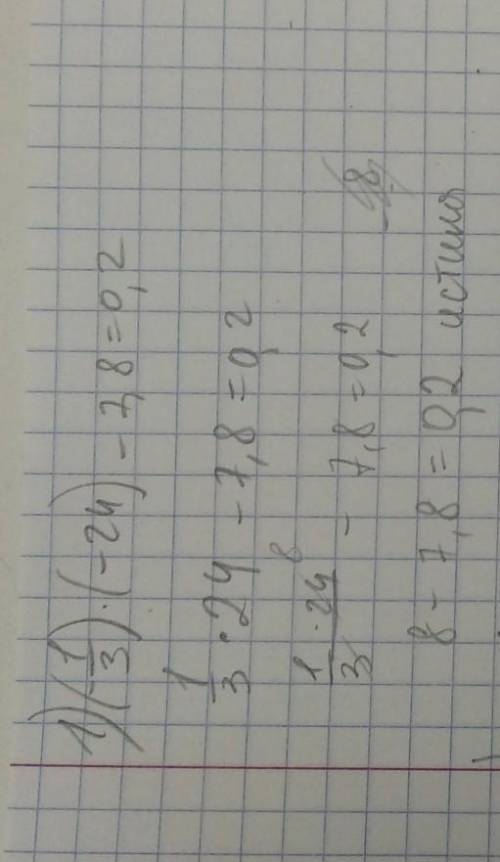 1) (-1/3) · (-24) - 7,8 = 0,2
1/3 · 24 - 7,8 = 0,2
1 · 24/3 8 - 7,8 = 0,2
8 - 7,8 = 0,2 истина